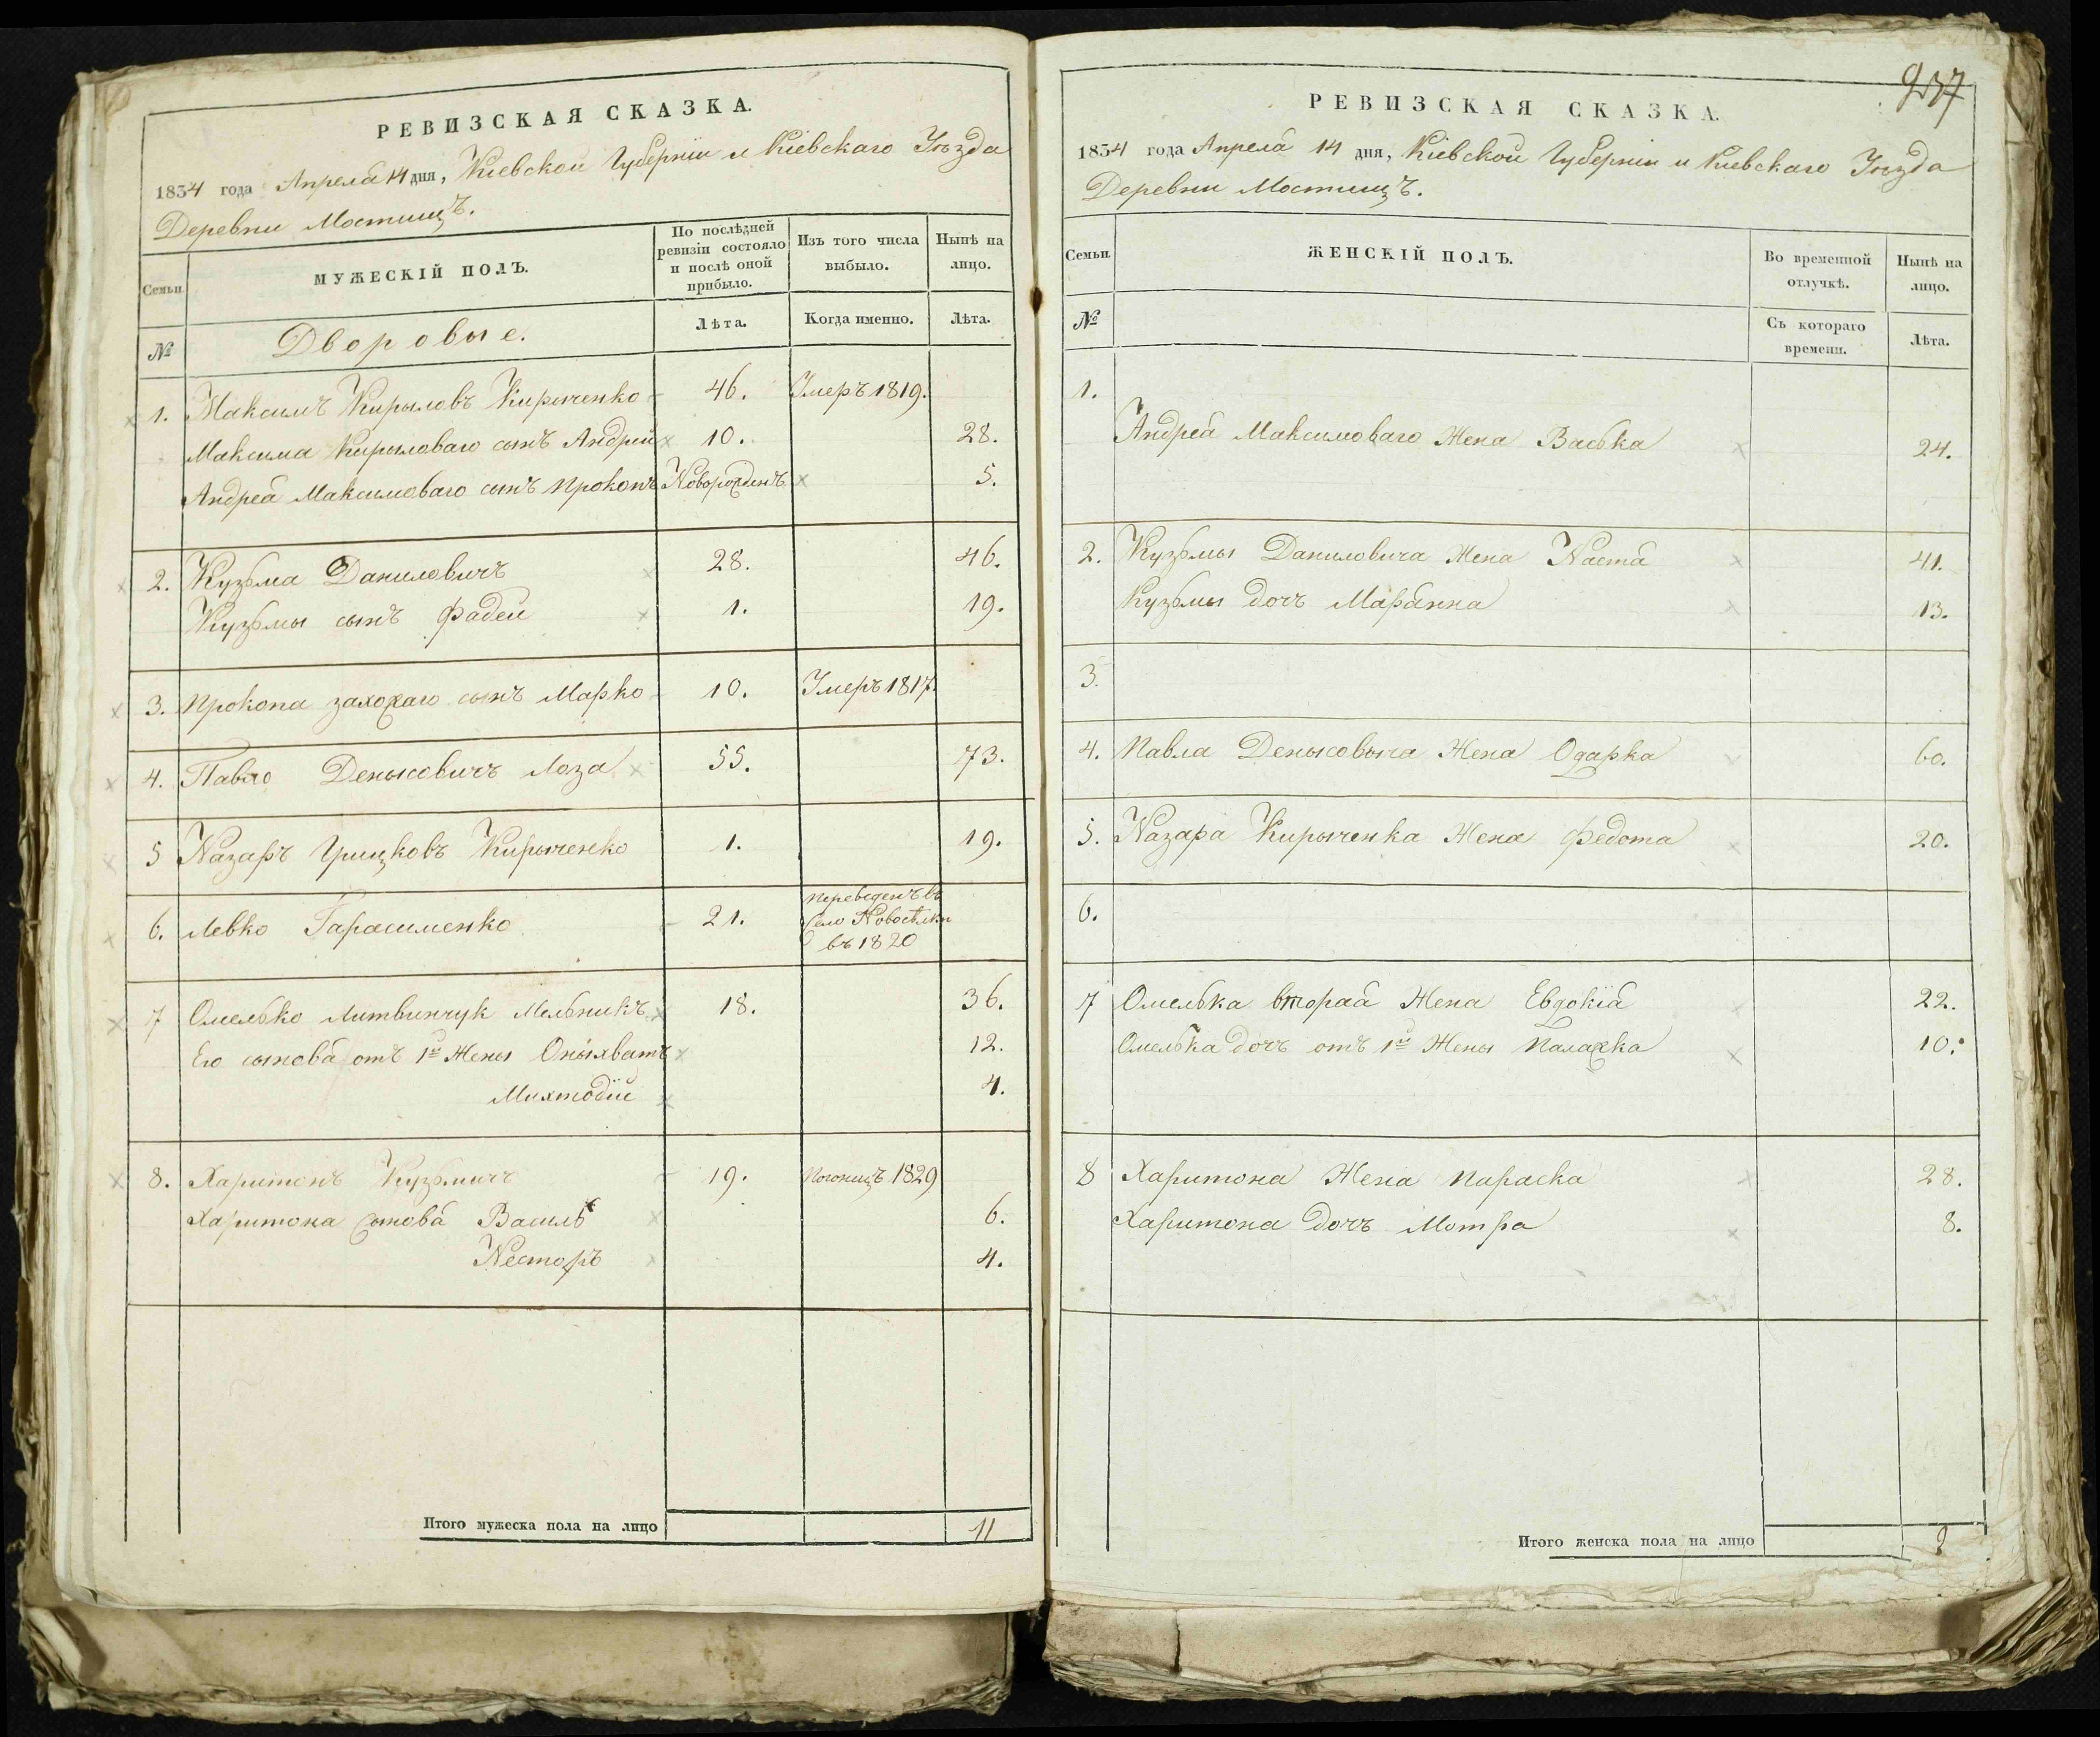 РЕВИЗСКАЯ СКАЗКА.
1834 года Апреля 14 дня, Киевской Губернїи и Кіевскаго Уѣзда
Деревни Мостищъ.
Семьи
МУЖЕСКІЙ ПОЛЪ.
По послѣдней
ревизіи состояло
и послѣ оной
прибыло.
Изъ того числа
выбыло.
Нынѣ на
лицо.
№
Дворовые.
Лѣта.
Когда именно.
Лѣта.
1. Максимъ Кирыловъ Кирыченко 46. Умеръ 1819.
Максима Кирыловаго сынъ Андрей 10. 28.
Андрея Максимоваго сынъ Прокопъ Новорожденъ 5.
2. Кузьма Даниловичъ 28. 46.
Кузьмы сынъ Фадей 1. 19.
3. Прокопа сынъ Марко 10. Умеръ 1817.
4. Павло Денысовичъ Лоза 55. 73.
5 Назаръ Грицковъ Кирыченко 1. 19.
6. Левко Гарасименко 21. Переведенъ въ
Село Новосѣлки
въ 1820
7 Омелько Литвинчук Мельникъ 18. 36.
Его сыновя отъ 1й Жены Оныхватъ 12.
Михтодїй 4.
8. Харитонъ Кузьмичъ 19. 1829
Харитона сыновя Василь 6.
Несторъ 4.
Итого мужеска пола на лицо 11
937
РЕВИЗСКАЯ СКАЗКА.
1834 года Апреля 14 дня, Кіевской Губерніи и Киевскаго Уѣзда
Деревни Мостищъ.
Семьи
ЖЕНСКІЙ ПОЛЪ.
Во временной
отлучкѣ.
Нынѣ на
лицо.
№
Съ котораго
времени.
Лѣта.
1.
Андрея Максимоваго Жена Васька 24.
2. Кузьмы Даниловича Жена Настя 41.
Кузьмы дочъ Марьянна 13.
3.
4. Павла Денысовыча Жена Одарка 60.
5. Назара Кирыченка Жена Федота 20.
6.
7 Омелька вторая Жена Евдокїя 22.
Омелька дочъ отъ 1й Жены Палажка 10.
8 Харитона Жена Параска 28.
Харитона дочъ Мотря 8.
Итого женска пола на лицо